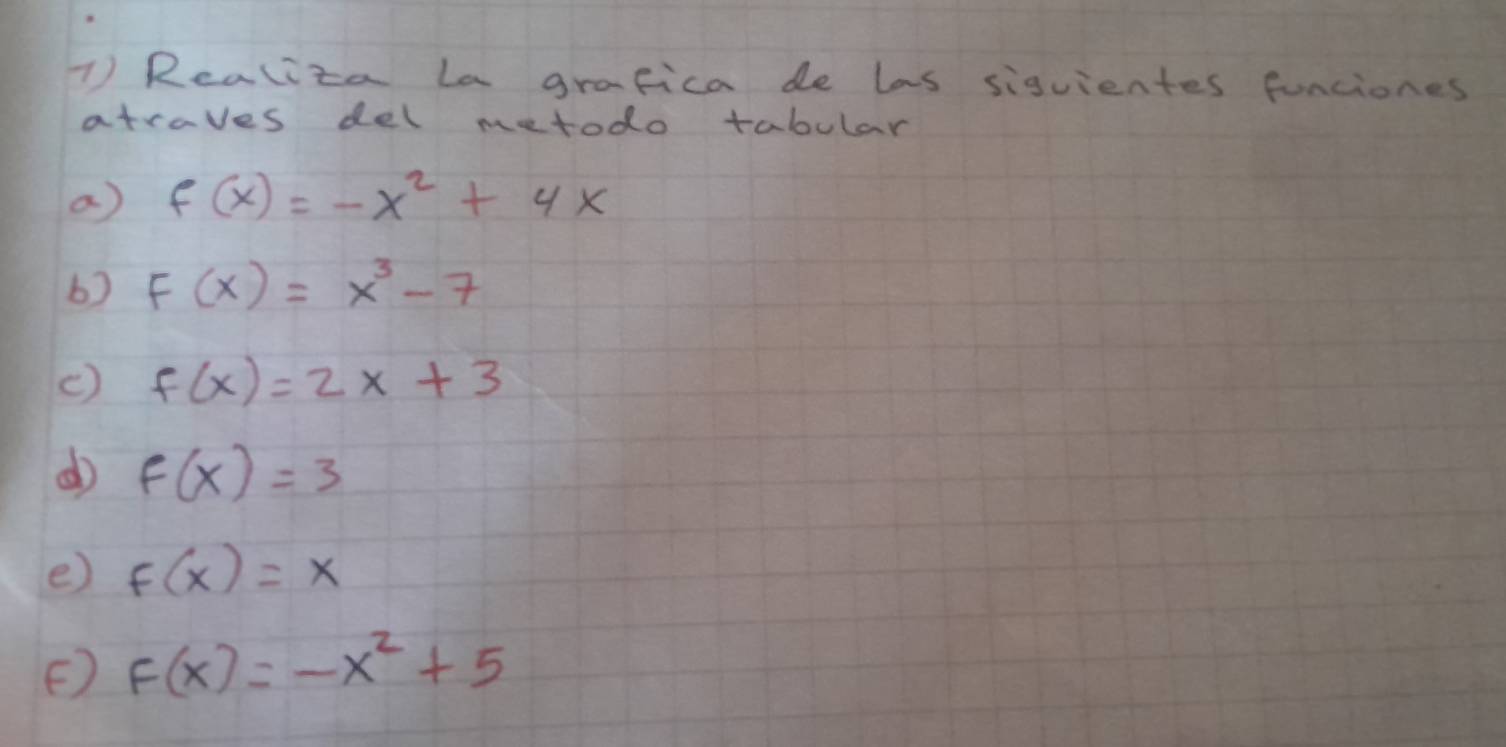 1) Realiza la grafica de las siguientes funciones
atraves del metodo tabular
a) f(x) = -x² + 4x
b) F(x) = x³ - 7
c) f(x) = 2x + 3
d) f(x) = 3
e) f(x) = x
F) F(x) = -x² + 5